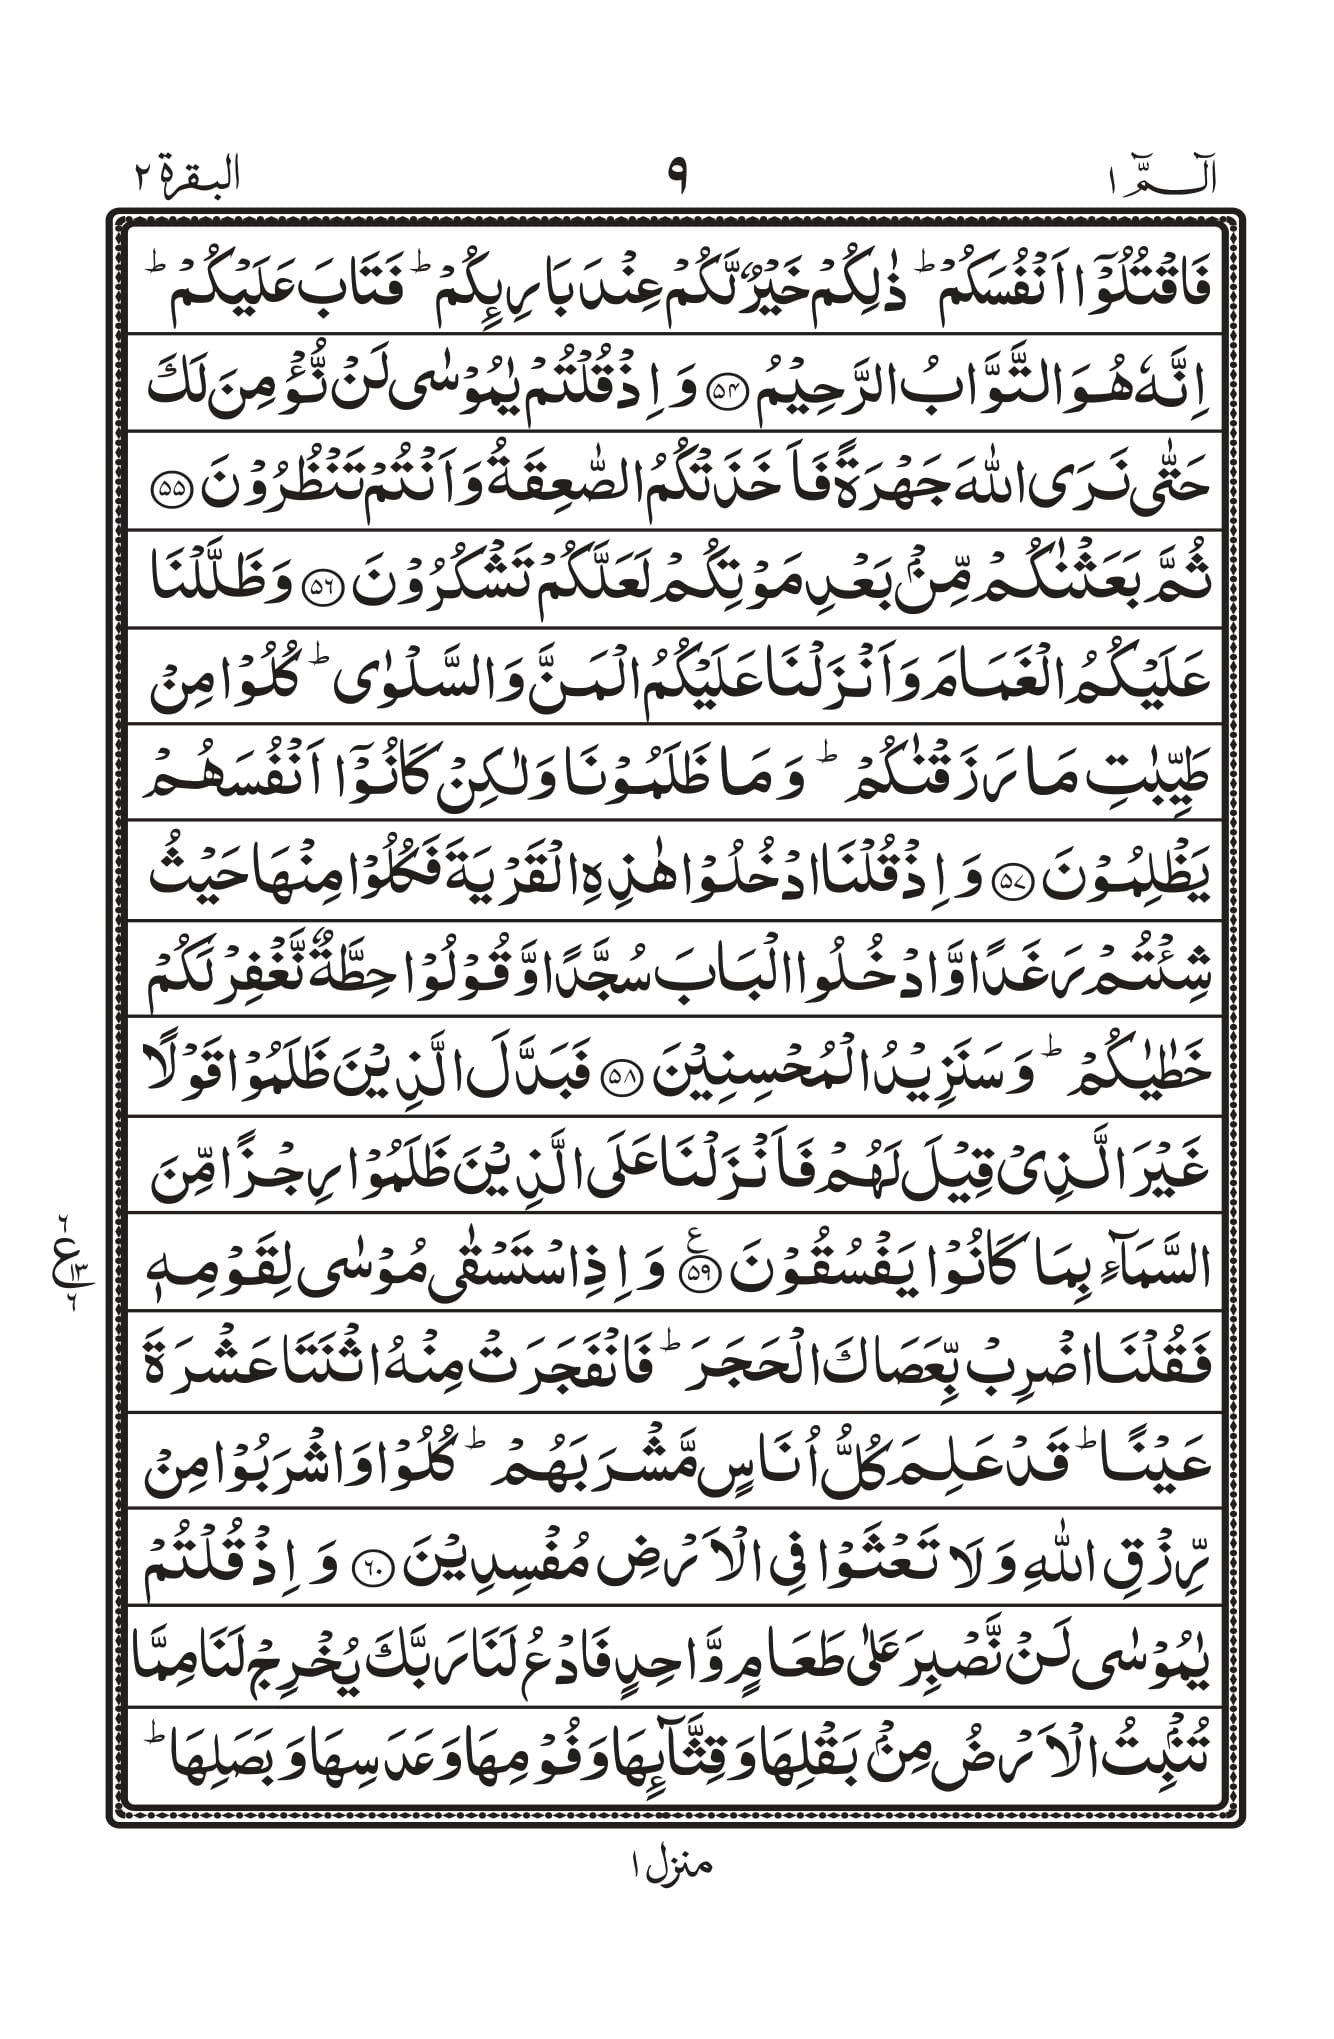 الٓـمّٓ ۱ ۹ البقرة ۲
فَاقۡتُلُوۡۤا اَنۡفُسَكُمۡ ؕ ذٰلِكُمۡ خَيۡرٌ لَّكُمۡ عِنۡدَ بَارِئِكُمۡ ؕ فَتَابَ عَلَيۡكُمۡ ؕ
اِنَّهٗ هُوَ التَّوَّابُ الرَّحِيۡمُ ﴿۵۴﴾ وَ اِذۡ قُلۡتُمۡ يٰمُوۡسٰى لَنۡ نُّؤۡمِنَ لَكَ
حَتّٰى نَرَى اللّٰهَ جَهۡرَةً فَاَخَذَتۡكُمُ الصّٰعِقَةُ وَ اَنۡتُمۡ تَنۡظُرُوۡنَ ﴿۵۵﴾
ثُمَّ بَعَثۡنٰكُمۡ مِّنۡۢ بَعۡدِ مَوۡتِكُمۡ لَعَلَّكُمۡ تَشۡكُرُوۡنَ ﴿۵۶﴾ وَ ظَلَّلۡنَا
عَلَيۡكُمُ الۡغَمَامَ وَ اَنۡزَلۡنَا عَلَيۡكُمُ الۡمَنَّ وَ السَّلۡوٰى ؕ كُلُوۡا مِنۡ
طَيِّبٰتِ مَا رَزَقۡنٰكُمۡ ؕ وَ مَا ظَلَمُوۡنَا وَ لٰكِنۡ كَانُوۡۤا اَنۡفُسَهُمۡ
يَظۡلِمُوۡنَ ﴿۵۷﴾ وَ اِذۡ قُلۡنَا ادۡخُلُوۡا هٰذِهِ الۡقَرۡيَةَ فَكُلُوۡا مِنۡهَا حَيۡثُ
شِئۡتُمۡ رَغَدًا وَّ ادۡخُلُوا الۡبَابَ سُجَّدًا وَّ قُوۡلُوۡا حِطَّةٌ نَّغۡفِرۡ لَكُمۡ
خَطٰيٰكُمۡ ؕ وَ سَنَزِيۡدُ الۡمُحۡسِنِيۡنَ ﴿۵۸﴾ فَبَدَّلَ الَّذِيۡنَ ظَلَمُوۡا قَوۡلًا
غَيۡرَ الَّذِىۡ قِيۡلَ لَهُمۡ فَاَنۡزَلۡنَا عَلَى الَّذِيۡنَ ظَلَمُوۡا رِجۡزًا مِّنَ
السَّمَآءِ بِمَا كَانُوۡا يَفۡسُقُوۡنَ ﴿۵۹﴾ ع وَ اِذِ اسۡتَسۡقٰى مُوۡسٰى لِقَوۡمِهٖ
۶ ع ۱۳ ۶
فَقُلۡنَا اضۡرِبۡ بِّعَصَاكَ الۡحَجَرَ ؕ فَانۡفَجَرَتۡ مِنۡهُ اثۡنَتَا عَشۡرَةَ
عَيۡنًا ؕ قَدۡ عَلِمَ كُلُّ اُنَاسٍ مَّشۡرَبَهُمۡ ؕ كُلُوۡا وَ اشۡرَبُوۡا مِنۡ
رِّزۡقِ اللّٰهِ وَ لَا تَعۡثَوۡا فِى الۡاَرۡضِ مُفۡسِدِيۡنَ ﴿۶۰﴾ وَ اِذۡ قُلۡتُمۡ
يٰمُوۡسٰى لَنۡ نَّصۡبِرَ عَلٰى طَعَامٍ وَّاحِدٍ فَادۡعُ لَنَا رَبَّكَ يُخۡرِجۡ لَنَا مِمَّا
تُنۡۢبِتُ الۡاَرۡضُ مِنۡۢ بَقۡلِهَا وَ قِثَّآئِهَا وَ فُوۡمِهَا وَ عَدَسِهَا وَ بَصَلِهَا ؕ
منزل ۱